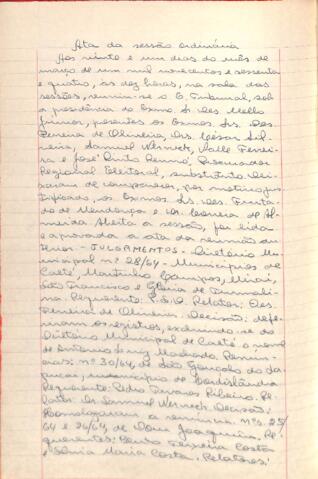 Ata da sessão ordinária
Aos vinte e um dias do mês de
março de um mil novecentos e sessenta
e quatro, às dez horas, na sala das
sessões, reuniu-se o E. Tribunal, sob
a presidência do Exmo. Sr. Des. Mello
Júnior, presentes os Exmos. Srs. Des.
Ferreira de Oliveira, Drs. César Sil-
veira, Samuel Werneck, Valle Ferrei-
ra e José Pinto Renno, Procurador
Regional Eleitoral, substituto. Dei-
xaram de comparecer, por motivo jus-
tificado, os Exmos. Srs. Des. Furta-
do de Mendonça e Dr. Correia de Al-
meida. Aberta a sessão, foi lida
e aprovada a ata da reunião an-
terior - JULGAMENTOS - Diretório Mu-
nicipal nº 28/64 - Municípios de
Caeté, Martinho Campos, Miraí,
São Francisco e Glória de
Requerente: P.S.D. Relator: Des.
Ferreira de Oliveira. Decisão: defe-
riram os registros, excluindo-se do
Diretório Municipal de Caeté o nome
de Antônio Luiz Machado. Renún-
cias: nº 30/64, de São Gonçalo do Sa-
pucaí, município de Cordislândia
Requerente: Pedro Tavares Ribeiro. Re-
lator: Dr. Samuel Werneck. Decisão:
Homologaram a renúncia. Nºs 25/
64 e 26/64, de Dona Joaquina. Re-
querentes: Bento Teixeira Costa
e Sônia Maria Costa. Relatores: